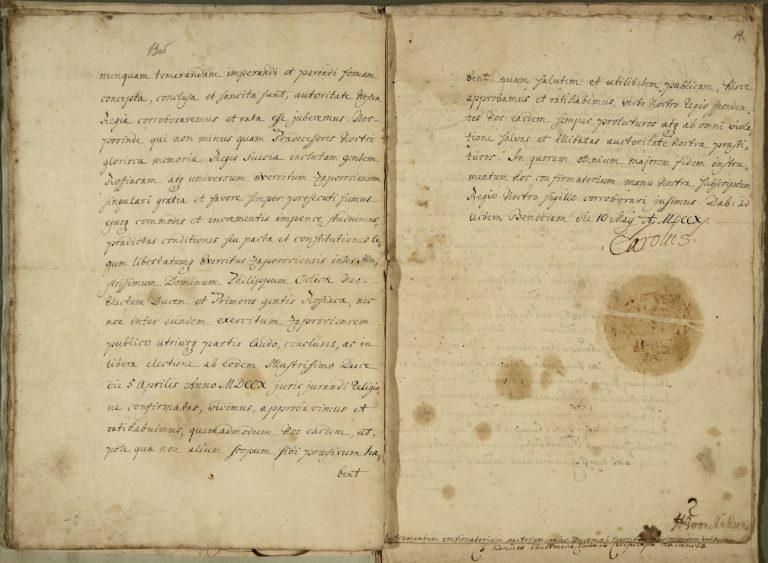 nunquam temerandam imperandi et parendi formam
concepta, conclusa et sancita sunt, autoritate Nostra
Regia corroboraremus et rata esse juberemus. Nos
proinde qui non minus quam Prædecessores Nostri
gloriosæ memoriæ Reges Sueciæ inclutam gentem
Rossiacam atq universum exercitum Zaporoviensem
singulari gratia et favore semper prosecuti sumus
ejusq commodis et incrementis impense studuimus,
prædictas conditiones seu pacta et constitutiones le,,
gum libertatumq Exercitus Zaporoviensis inter Illu,,
strissimum Dominum Philippum Orlick Neo-
electum Ducem et Primores gentis Rossiacæ, nec
non inter eundem exercitum Zaproviensem
publico utriusq partis laudo, conclusas, ac in
libera electione ab Eodem Illustrissimo Duce
die 5 Aprilis Anno MDCCX juris jurandi Religio,,
ne confirmatas, vidimus, approbavimus et
ratihabuimus, quemadmodum Nos easdem, ut,,
pote qua non alium scopum sibi præfixum ha,,
bent
14
bent quam salutem et utilitatem publicam, hisce
approbamus et ratihabimus, verbo Nostro Regio sponden,,
tes Nos easdem semper protecturos atq ab omni viola,,
tione salvas et illibatas auctoritate Nostra præsti,,
turos. In quorum omnium majorem fidem instru,,
mentum hoc confirmatorium manu Nostra subscriptum
Regio Nostro sigillo corroborari jussimus. Dab: ad
urbem Benderam die 10 Maij A MDCCX.
Carolus.
2
von Müllern
Instrumentum confirmatorium pactorum inter Ducem et Exercitum